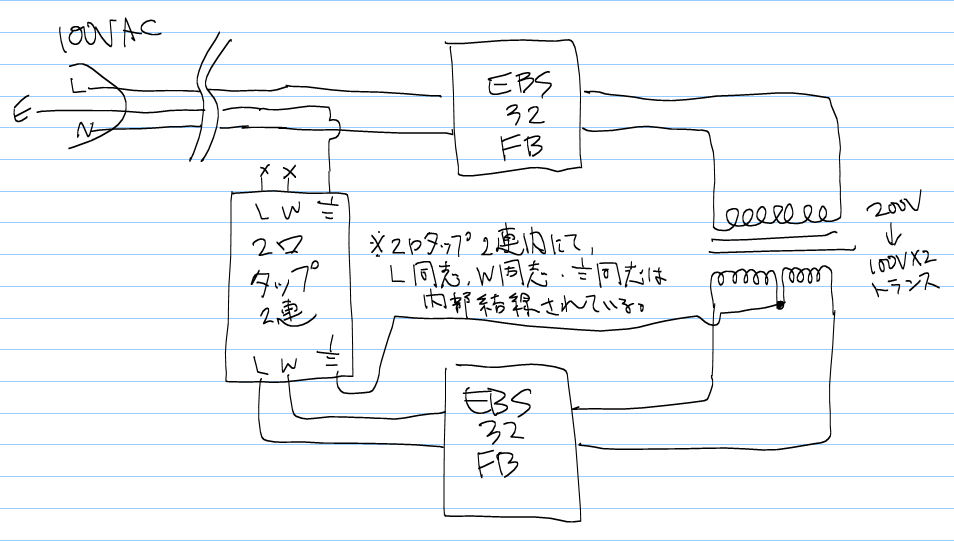 100V AC
L
E
N
EBS
32
FB
× ×
L W ⏚
2口
タップ
2連
L W ⏚
※2口タップ2連内にて、
L同志、W同志・⏚同志は
内部結線されている。
200V
↓
100V×2
トランス
EBS
32
FB